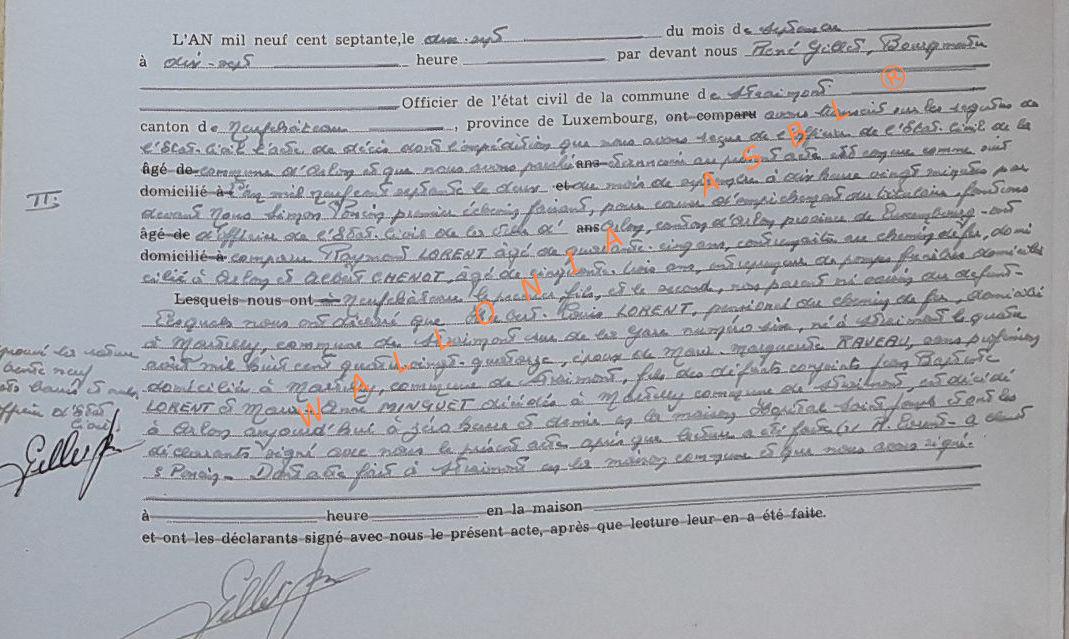 L'AN mil neuf cent septante, le dix-sept du mois de septembre
à dix-sept heure par devant nous René Gillet, Bourgmestre
Officier de l'état civil de la commune de Straimont
canton de Neufchâteau, province de Luxembourg, ont comparu avons transcrit sur les registres de
l'Etat-Civil l'acte de décès dont l'expédition que nous avons reçue de l'officier de l'Etat-Civil de la
âgé de commune d'Arlon et que nous avons ans au présent acte est conçue comme suit
domicilié à L'an mil neuf cent septante le deux et du mois de septembre à dix heures vingt minutes par
devant Nous Simon Poncin premier échevin faisant, pour cause d'empêchement du titulaire, fonctions
âgé de d'officier de l'Etat-Civil de la Ville d' ans Arlon, canton d'Arlon province de Luxembourg - ont
domicilié à comparu Raymond LORENT âgé de quarante-cinq ans, contrôleur au chemin de fer, domi
cilié à Arlon et Albert CHENOT, âgé de cinquante-trois ans, entrepreneur de pompes funèbres domicilié
Lesquels nous ont à Neufchâteau, le premier fils, et le second, non parent ni voisin du défunt-
Lesquels nous ont déclaré que Louis LORENT, pensionné du chemin de fer, domicilié
à Martilly, commune de Straimont rue de la Gare numéro six, né à Straimont le quatre
août mil huit cent quatre-vingt-quatorze, époux de Marie-Marguerite RAVEAU, sans profession
domiciliée à Martilly, commune de Straimont, fils des défunts conjoints Jean Baptiste
LORENT et Marie Anne MINGUET décédés à Martilly commune de Straimont, est décédé
à Arlon aujourd'hui à zéro heure et demie en la maison Hôpital Saint Joseph et ont les
déclarants signé avec nous le présent acte après que lecture a été faite R. Lorent - A. Chenot
S Poncin - Dont acte fait à Straimont en la maison commune et que nous avons signé.
à heure en la maison
et ont les déclarants signé avec nous le présent acte, après que lecture leur en a été faite.
II.
Approuvé la rature
de trente neuf
mots dans l'acte
officier d'Etat
Civil
Gillet
Gillet
WALLONIA ASBL ®